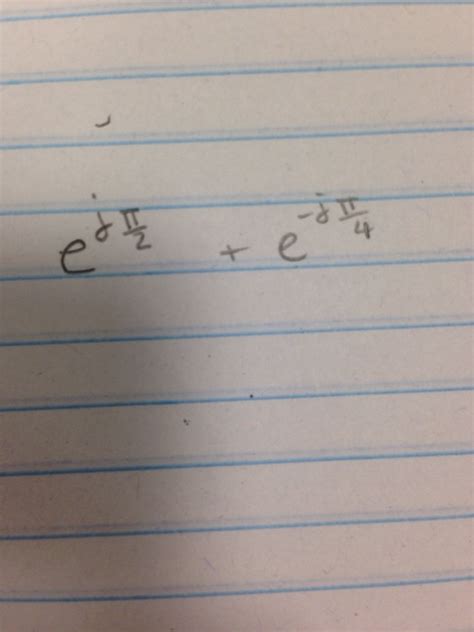 e^{j\frac{\pi}{2}} + e^{-j\frac{\pi}{4}}